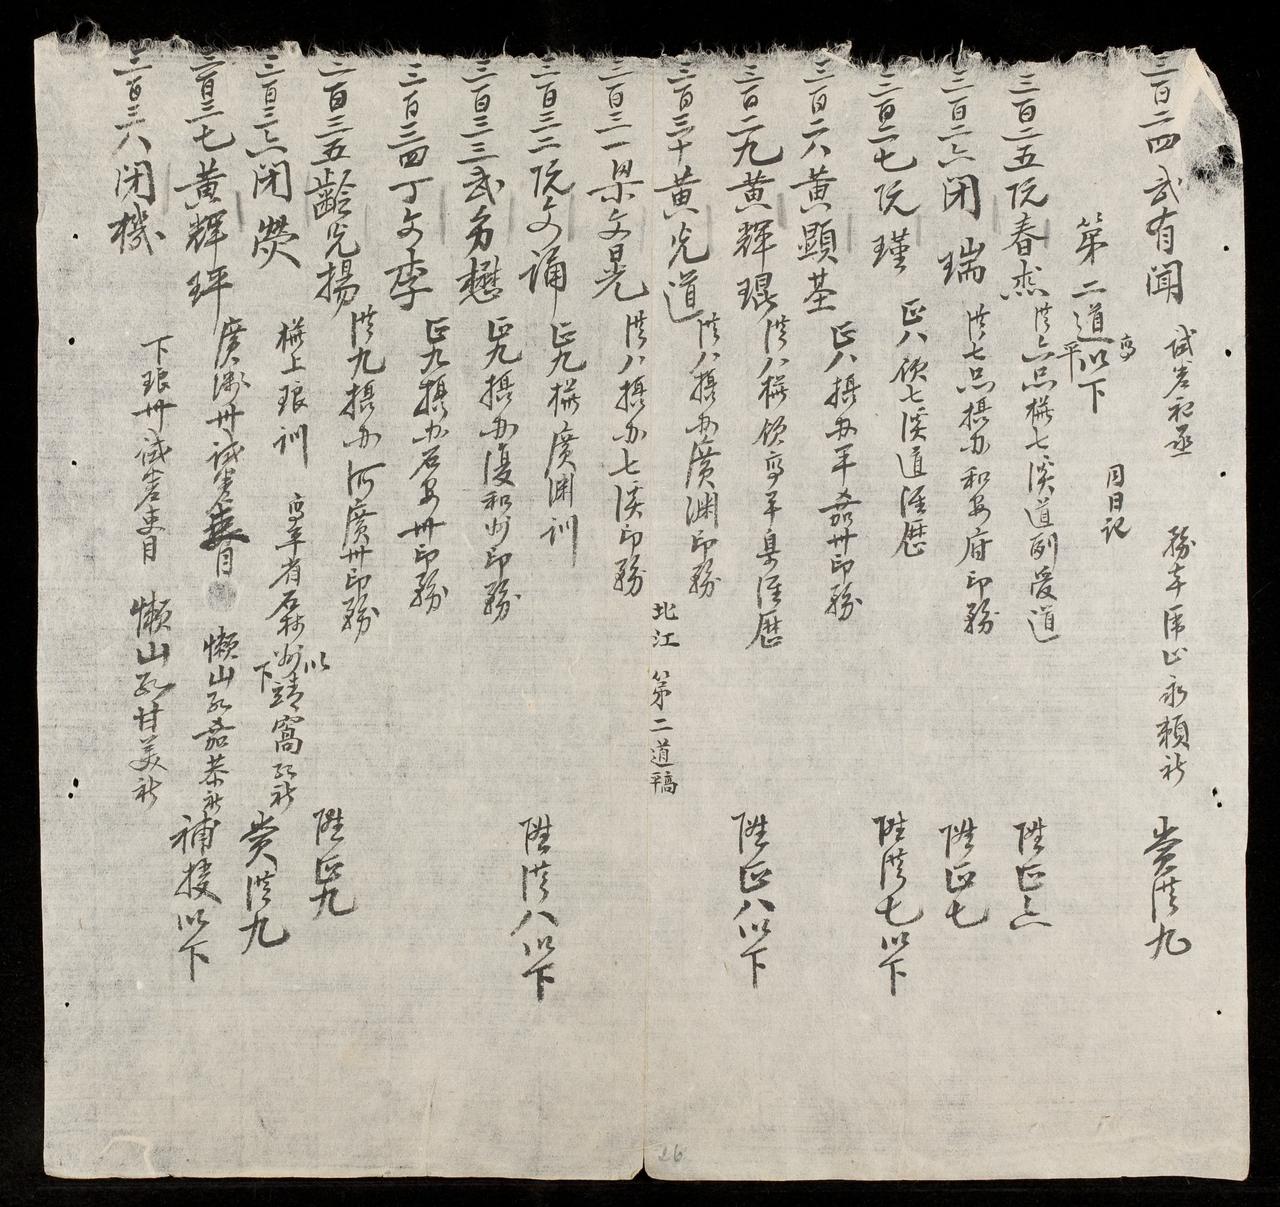 三百二四武有聞 試差 務本 庯 正永賴社 賞從九
同日記
第二道以下 高平
三百二五阮春 從六品 權七溪道 道 陞正六
三百二六閉瑞 從七品攝办和安府印務 陞正七
三百二七阮瑾 正八 領七溪道經歷 陞從七以下
三百二八黃顯基 正八攝办平嘉州印務
三百二九黃輝琨 從八權領高平臬經歷 陞正八以下
三百三十黃光道 從八攝办廣淵印務
北江 第二道稿
三百三一梁文晃 從八攝办七溪印務
三百三二阮文誦 正九權廣淵訓 陞從八以下
三百三三武多懋 正九攝办復和州印務
三百三四丁文李 正九攝办石安州印務
三百三五齡光揚 從九攝办河廣州印務 陞正九
三百三六閉熒 權上琅訓 高平省石林州靖窩總社 以下 賞從九
三百三七黃輝玶 廣淵州試差吏目 懶山總嘉恭社 補授以下
三百三八閉機 下琅州試差吏目 懶山總甘美社
26